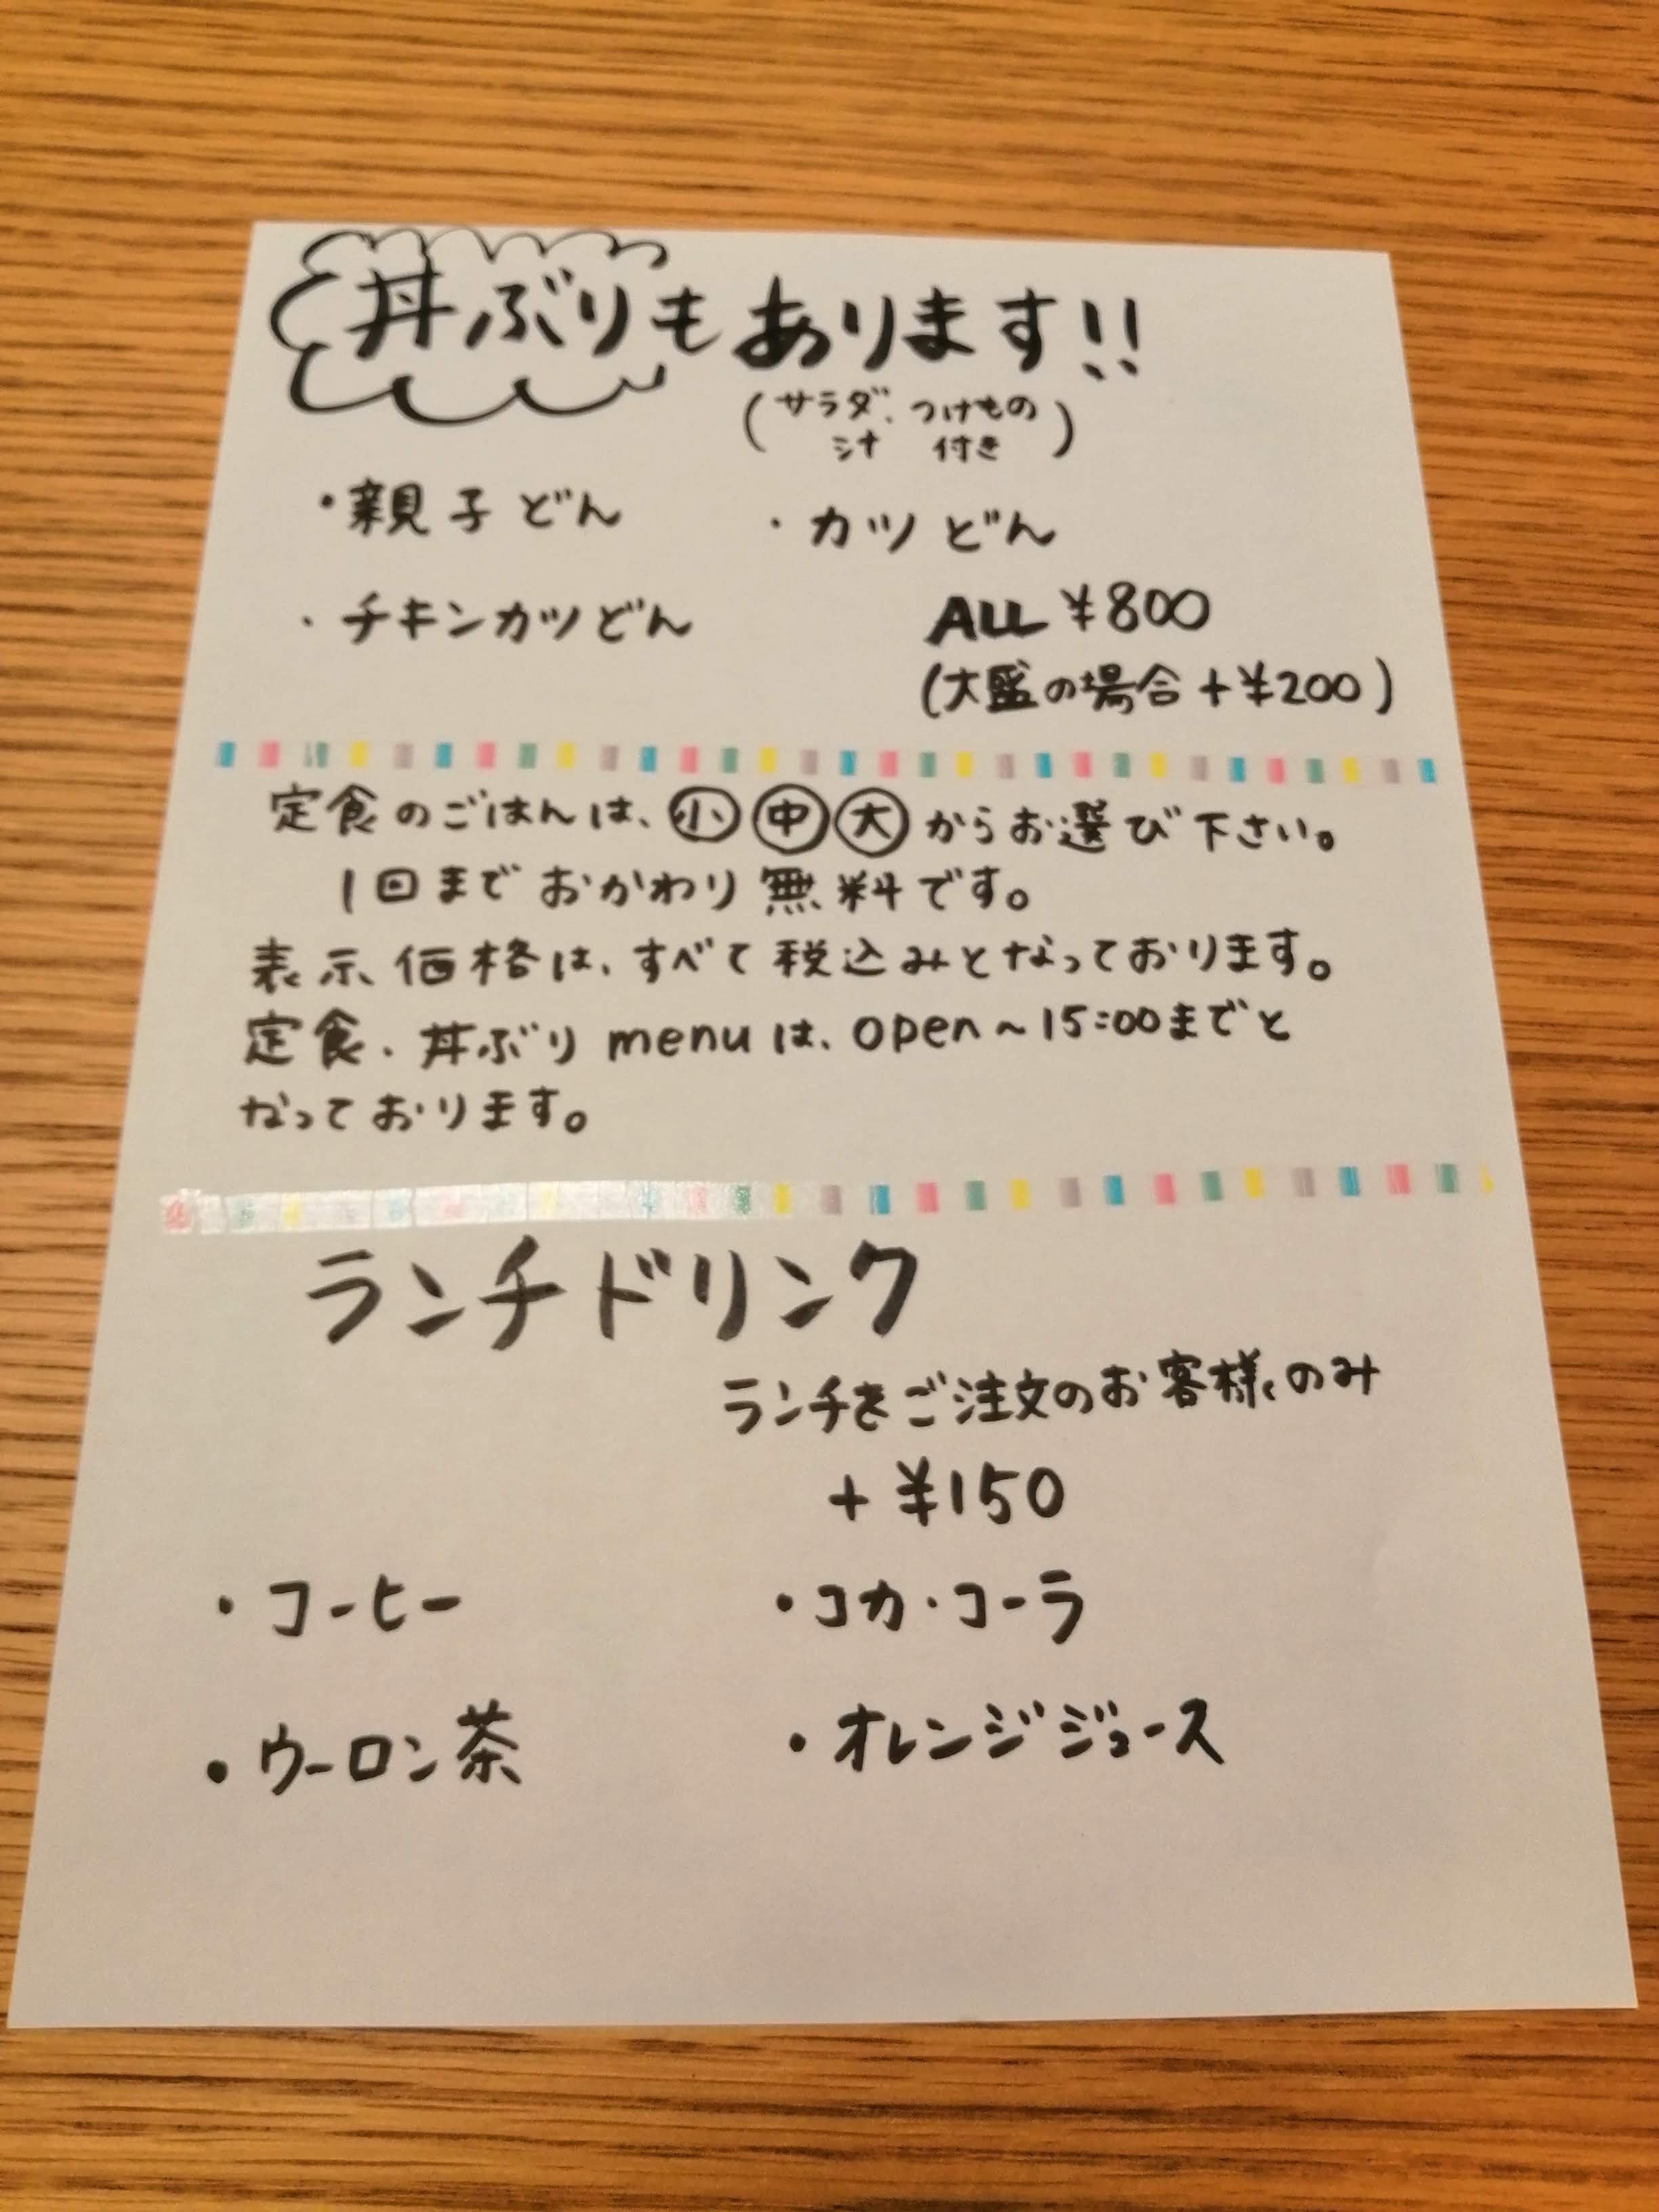 丼ぶりもあります!!
(サラダ、つけもの
汁 付き)
・親子どん ・カツどん
・チキンカツどん ALL ¥800
(大盛の場合+¥200)
定食のごはんは、小中大からお選び下さい。
1回までおかわり無料です。
表示価格は、すべて税込みとなっております。
定食・丼ぶりmenuは、open~15:00までと
なっております。
ランチドリンク
ランチをご注文のお客様のみ
+¥150
・コーヒー ・コカ・コーラ
・ウーロン茶 ・オレンジジュース